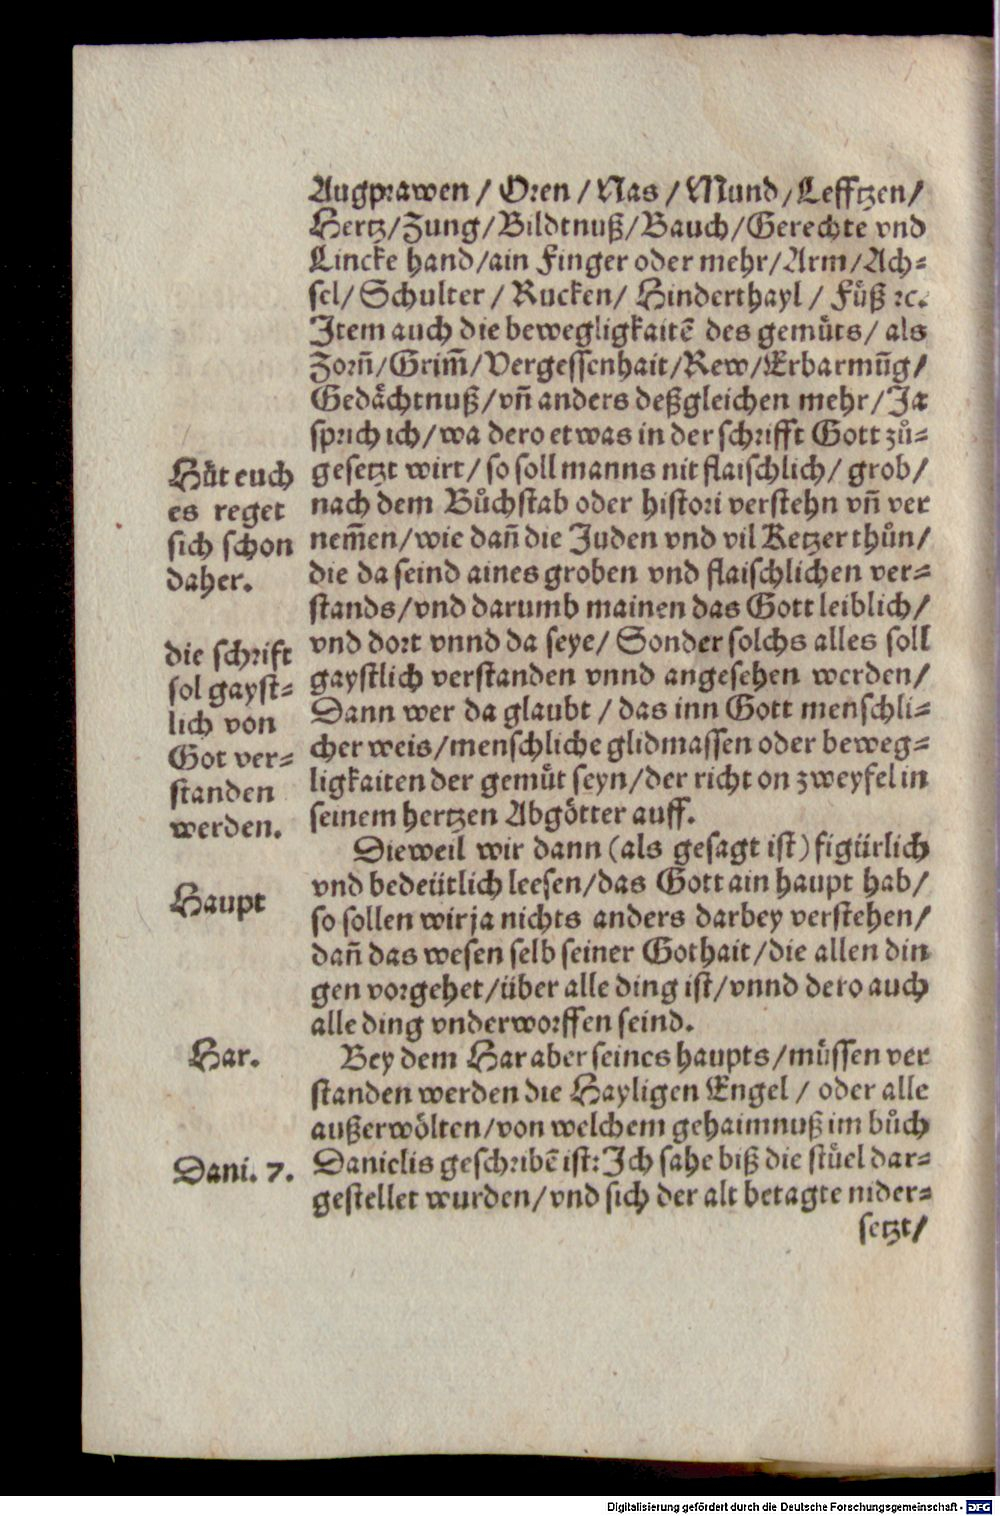 Augprawen / Oren / Nas / Mund / Lefftzen /
Hertz / Zung / Bildtnuß / Bauch / Gerechte vnd
Lincke hand / ain Finger oder mehr / Arm / Ach⸗
sel / Schulter / Rucken / Hinderthayl / Fuͤß ꝛc.
Item auch die bewegligkaitē des gemuͤts / als
Zorn̄ / Grim̄ / Vergessenhait / Rew / Erbarmūg /
Gedaͤchtnuß / vn̄ anders deßgleichen mehr / Ja
sprich ich / wa dero etwas in der schrifft Gott zů⸗
gesetzt wirt / so soll manns nit flaischlich / grob /
nach dem Bůchstab oder histori verstehn vn̄ ver
nem̄en / wie dan̄ die Juden vnd vil Ketzer thůn /
die da seind aines groben vnd flaischlichen ver⸗
stands / vnd darumb mainen das Gott leiblich /
vnd dort vnnd da seye / Sonder solchs alles soll
gaystlich verstanden vnnd angesehen werden /
Dann wer da glaubt / das inn Gott menschli⸗
cher weis / menschliche glidmassen oder beweg⸗
ligkaiten der gemuͤt seyn / der richt on zweyfel in
seinem hertzen Abgoͤtter auff.
Dieweil wir dann (als gesagt ist) figürlich
vnd bedeütlich leesen / das Gott ain haupt hab /
so sollen wir ja nichts anders darbey verstehen /
dan̄ das wesen selb seiner Gothait / die allen din
gen vorgehet / über alle ding ist / vnnd dero auch
alle ding vnderworffen seind.
Bey dem Har aber seines haupts / muͤssen ver
standen werden die Hayligen Engel / oder alle
außerwoͤlten / von welchem gehaimnuß im bůch
Danielis geschribē ist: Ich sahe biß die stuͤel dar⸗
gestellet wurden / vnd sich der alt betagte nider⸗
setzt /
Huͤt euch
es reget
sich schon
daher.
die schrift
sol gayst⸗
lich von
Got ver⸗
standen
werden.
Haupt
Har.
Dani. 7.
Digitalisierung gefördert durch die Deutsche Forschungsgemeinschaft - DFG